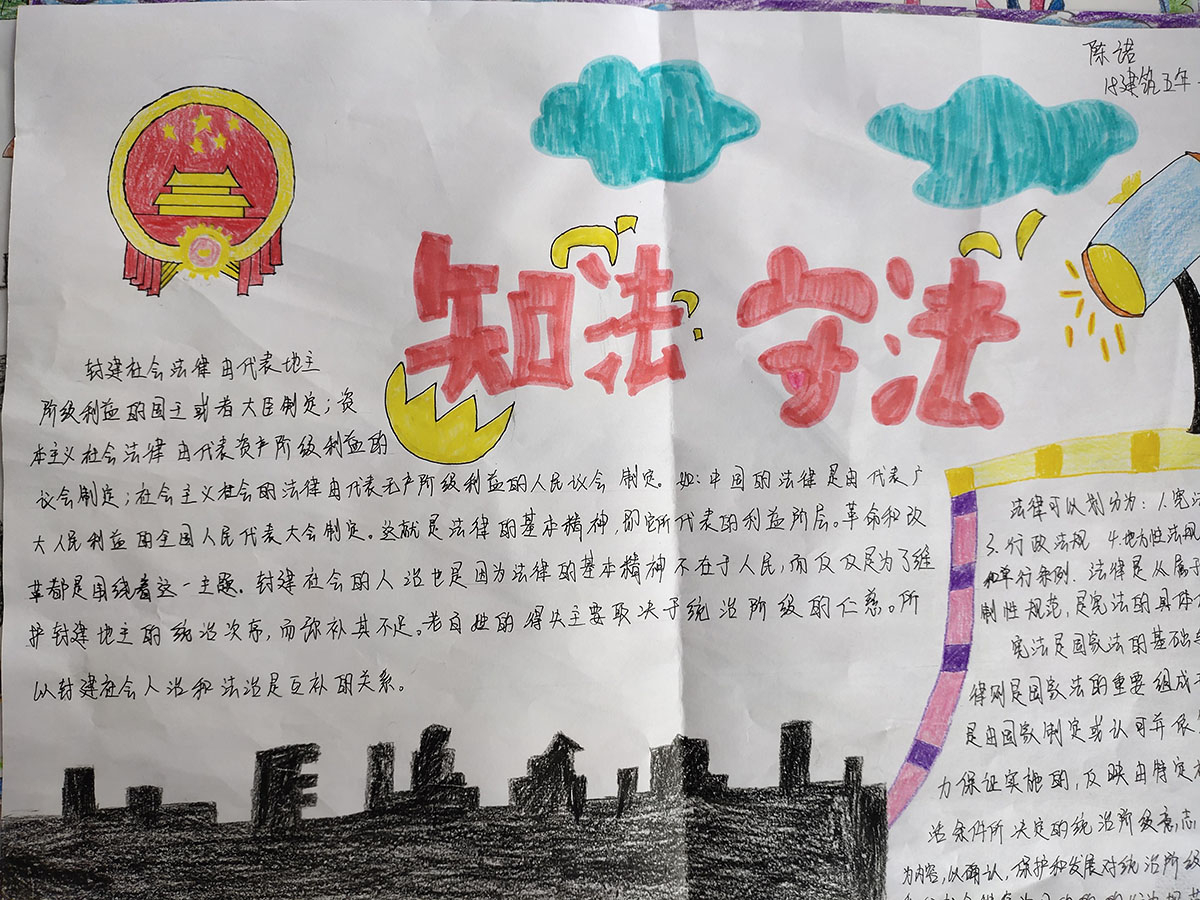 陈诺
18建筑五年
知法 守法
封建社会法律由代表地主
阶级利益的国王或者大臣制定；资
本主义社会法律由代表资产阶级利益的
议会制定；社会主义社会的法律由代表无产阶级利益的人民议会制定。如：中国的法律是由代表广
大人民利益的全国人民代表大会制定。这就是法律的基本精神，即它所代表的利益阶层。革命和改
革都是围绕着这一主题。封建社会的人治也是因为法律的基本精神不在于人民，而仅仅是为了维
护封建地主的统治次序，而弥补其不足。老百姓的得失主要取决于统治阶级的仁慈。所
以封建社会人治和法治是互补的关系。
法律可以划分为：1.宪法
3.行政法规 4.地方性法规
和单行条例．法律是从属于
制性规范，是宪法的具体
宪法是国家法的基础与
律则是国家法的重要组成
是由国家制定或认可并依
力保证实施的，反映由特定
治条件所决定的统治阶级意志，
为内容，以确认，保护和发展对统治阶级